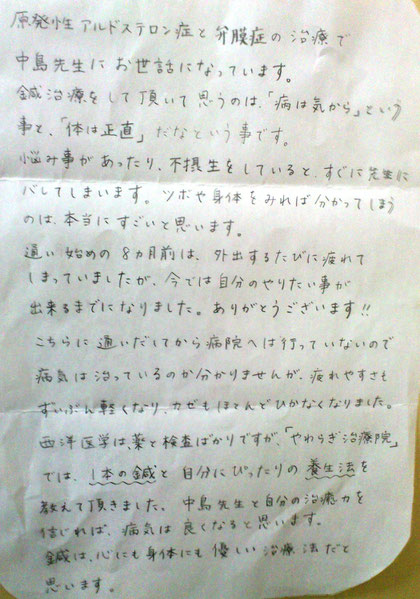 原発性アルドステロン症と弁膜症の治療で
中島先生にお世話になっています。
鍼治療をして頂いて思うのは、「病は気から」という
事と、「体は正直」だなという事です。
悩み事があったり、不摂生をしていると、すぐに先生に
バレてしまいます。ツボや身体をみれば分かってしまう
のは、本当にすごいと思います。
通い始めの8ヵ月前は、外出するたびに疲れて
しまっていましたが、今では自分のやりたい事が
出来るまでになりました。ありがとうございます!!
こちらに通いだしてから病院へは行っていないので
病気は治っているのか分かりませんが、疲れやすさも
ずいぶん軽くなり、カゼもほとんどひかなくなりました。
西洋医学は、薬と検査ばかりですが、「やわらぎ治療院」
では、1本の鍼と自分にぴったりの養生法を
教えて頂きました。中島先生と自分の治癒力を
信じれば、病気は良くなると思います。
鍼は、心にも身体にも優しい治療法だと
思います。